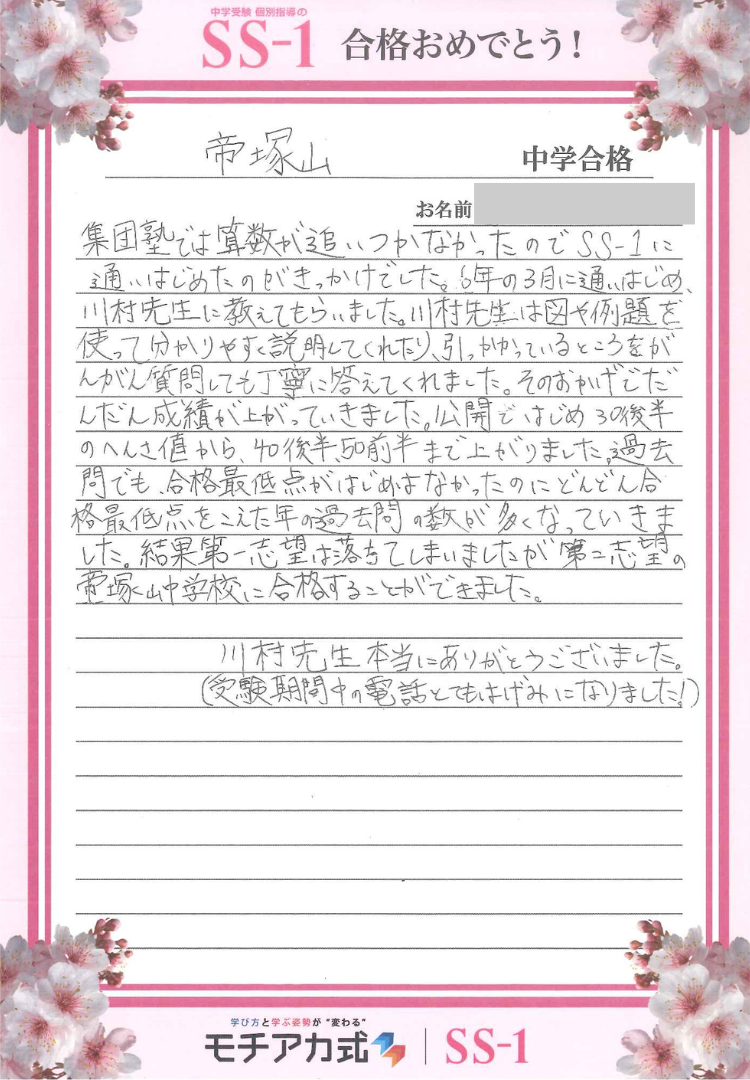 中学受験 個別指導の
SS-1 合格おめでとう!
帝塚山 中学合格
お名前
集団塾では算数が追いつかなかったのでSS-1に
通いはじめたのがきっかけでした。6年の3月に通いはじめ、
川村先生に教えてもらいました。川村先生は図や例題を
使って分かりやすく説明してくれたり、引っかかっているところをが
んがん質問しても丁寧に答えてくれました。そのおかげでだ
んだん成績が上がっていきました。公開ではじめ30後半
のへんさ値から、40後半、50前半まで上がりました。過去
問でも、合格最低点がはじめはなかったのにどんどん合
格最低点をこえた年の過去問の数が多くなっていきま
した。結果第一志望は落ちてしまいましたが第二志望の
帝塚山中学校に合格することができました。
川村先生本当にありがとうございました。
(受験期間中の電話とてもはげみになりました!)
学び方と学ぶ姿勢が"変わる"
モチアカ式 SS-1